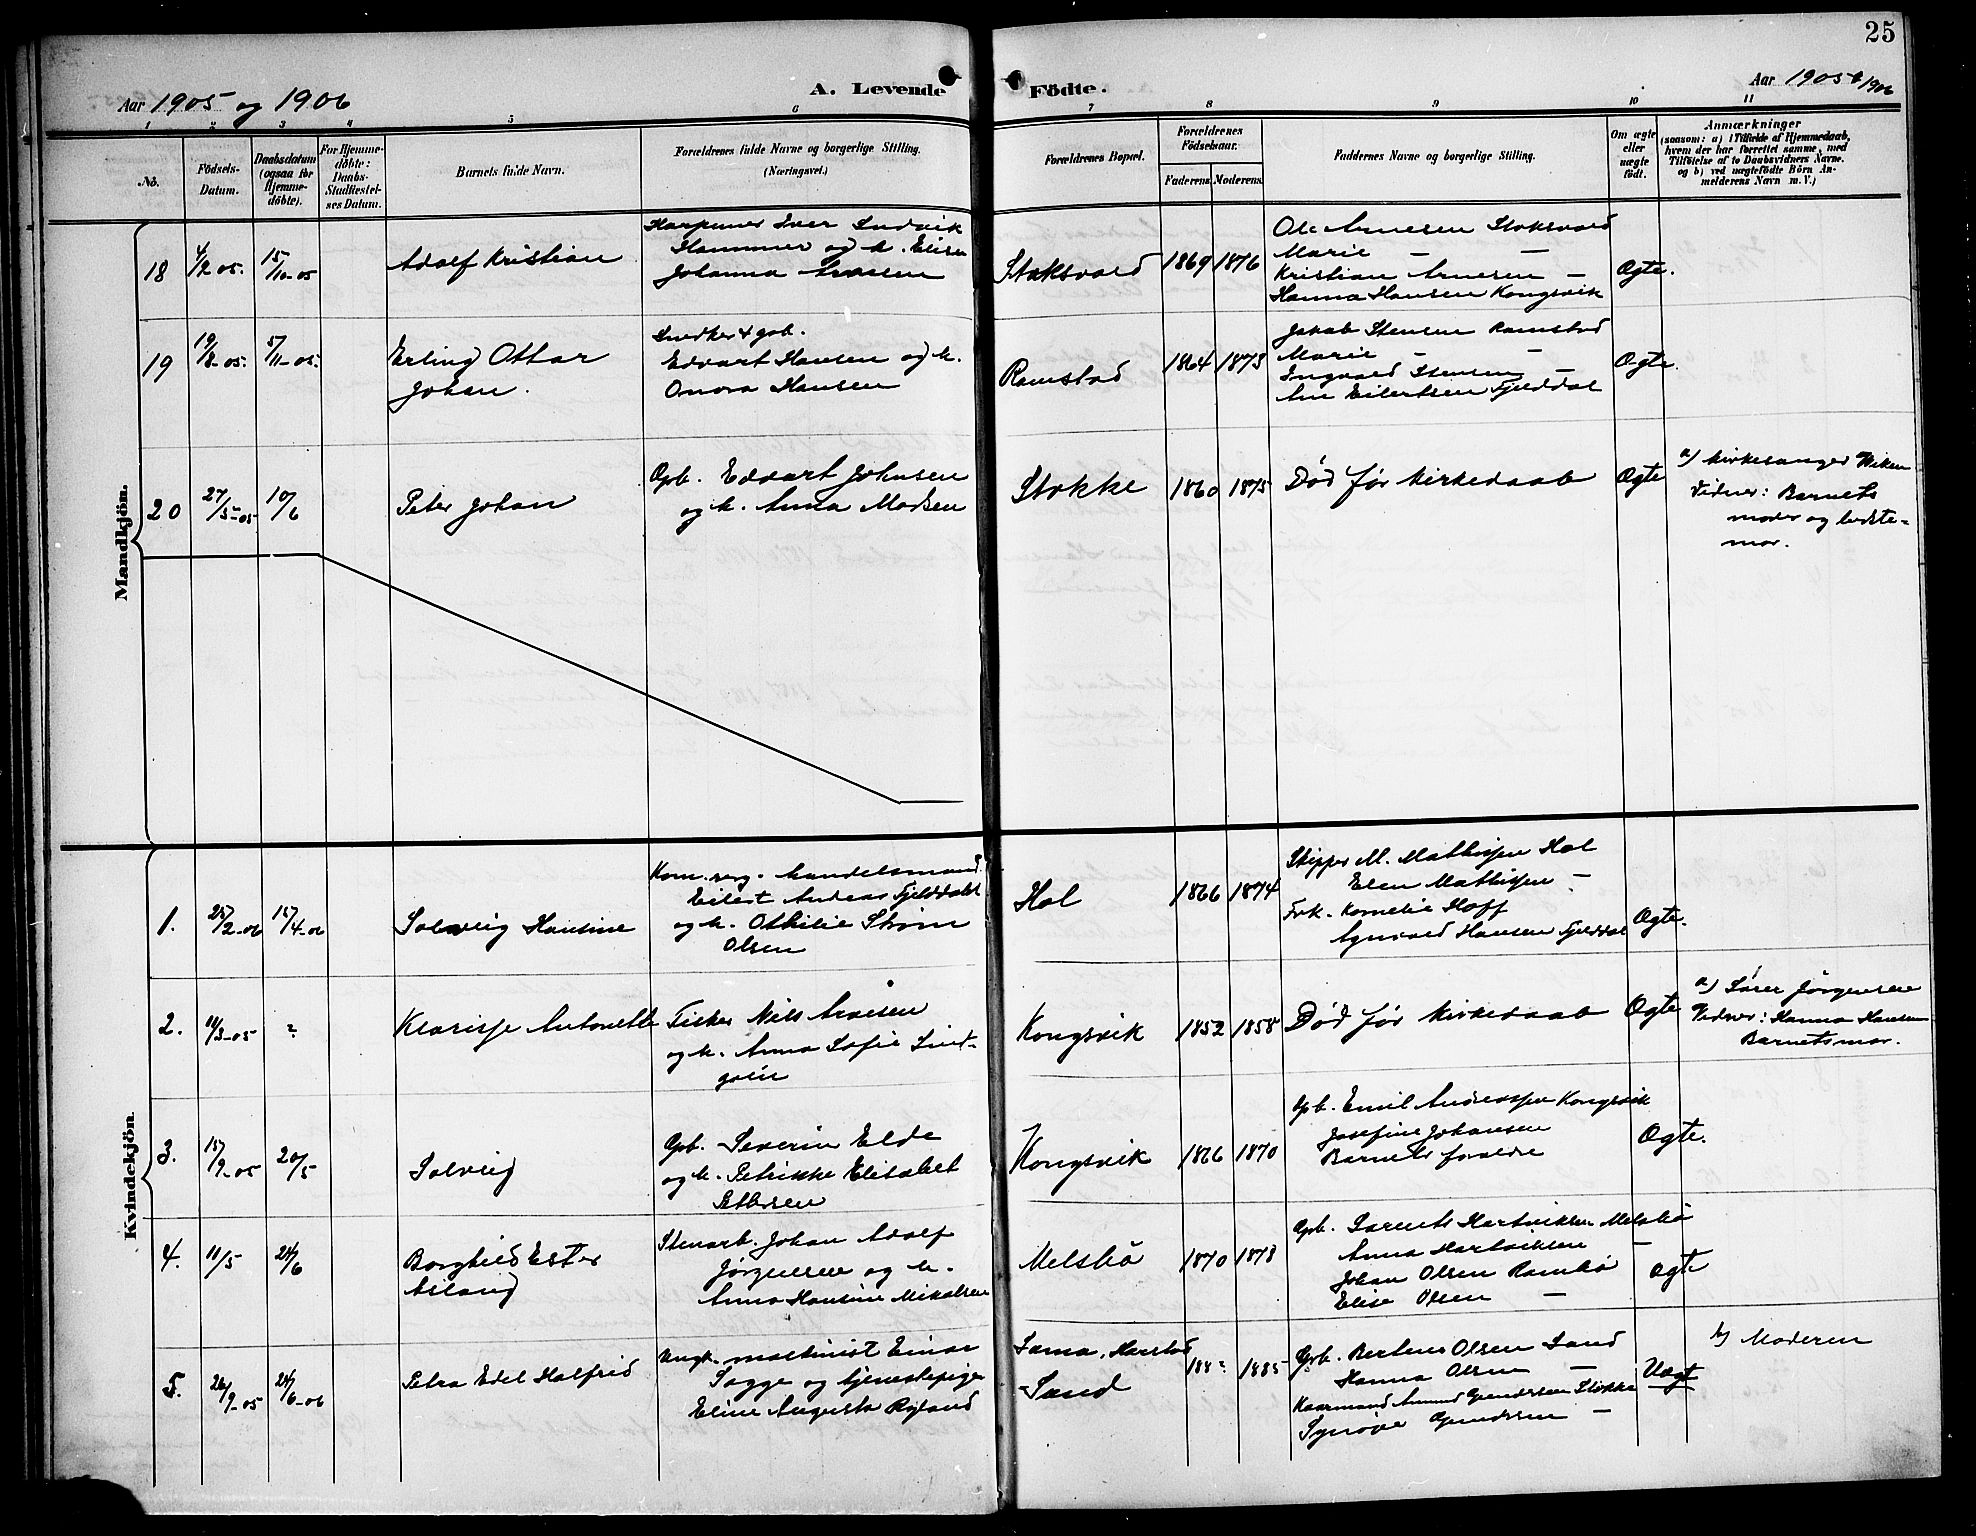 25
Aar 1905 og 1906
A. Levende Födte.
Aar 1905 & 1906
1 2 3 4 5 6 7 8 9 10 11
No.
Födsels-
Datum.
Daabsdatum
(ogsaa for
Hjemme-
döbte).
For Hjemme-
döbte:
Daabs-
Stadfæstel-
ses Datum.
Barnets fulde Navn.
Forældrenes fulde Navne og borgerlige Stilling.
(Næringsvei.)
Forældrenes Bopæl.
Forældrenes
Födselsaar.
Faderens. Moderens.
Faddernes Navne og borgerlige Stilling.
Om ægte
eller
uægte
födt.
Anmærkninger
(saasom: a) i Tilfælde af Hjemmedaab,
hvem der har forrettet samme, med
Tilföielse af to Daabsvidners Navne.
og b) ved uægtefödte Börn An-
melderens Navn m. V.)
Mandkjön.
18
15/10-05
Adolf Kristian
Iver Sundvik
Hammer og h. Elise
Johanna Arnesen
Stoksvold
1869 1876
Ole Arnesen Stoksvold
Marie — —
Kristian Arnesen —
Hanna Hansen Kongsvik
Ægte.
19
19/8-05.
5/11-05.
Erling Ottar
Johan.
Snedker & gbr.
Edvart Hansen og h.
Onora Hansen
Ramstad
1864 1873
Jakob Stensen Ramstad
Marie — —
Ingvald Stensen —
Ane Eilertsen Fjelddal
Ægte.
20
27/5-05
10/6
Peter Johan
Gpb. Edvart Johnsen
og h. Anna Madsen
Stokke
1860 1875
Död för kirkedaab
Ægte
a) Kirkesanger Wiken
Vidner: Barnets
moder og bedste-
mor.
Kvindekjön.
1.
25/2-06
15/4-06
Solveig Hansine
Kom. rerg. handelsmand
Eilert Andreas Fjelddahl
og h. Othilie Ström
Olsen
Hol
1866 1874
Skipper M. Mathisen Hol
Elen Mathisen —
Frk. Kornelie Hoff
Agnvald Hansen Fjelddal
Ægte.
2.
?
Klarisse Antonette
Fisker Nils Arnesen
og h. Anna Sofie Lind-
gren
Kongsvik
1852 1858
Död för kirkedaab
Ægte
a) Sören Jörgensen
Vidner: Hanna Hansen
Barnets mor.
3.
15/9-05
20/5
Solveig
Gpb. Severin Elde
og h. Petrikke Elisabet
Pettersen
Kongsvik
1866 1870
Gpb. Emil Andreassen Kongsvik
Josefine Johansen
Barnets forældre
Ægte.
4.
11/5
24/6
Borghild Ester
Aslaug
Stenarb. Johan Adolf
Jörgensen og h.
Anna Hansine Mikalsen
Melsbö
1870 1878
Gpb. Hartviksen Melsbö
Anna Hartviksen —
Johan Olsen Rambö
Elise Olsen —
Ægte
5.
26/9-05
24/6-06
Petra Edel Halfrid
Ungk. maskinist Einar
Sagge og tjenestepige
Eline Augusta Rgland
Sama, Harstad
Sand
188? 1885
Gpb. Bertheus Olsen Sand
Hanna Olsen —
Kaarmand Amund Gundersen Stokke
Synöve Gundersen —
Uægt
b) Moderen